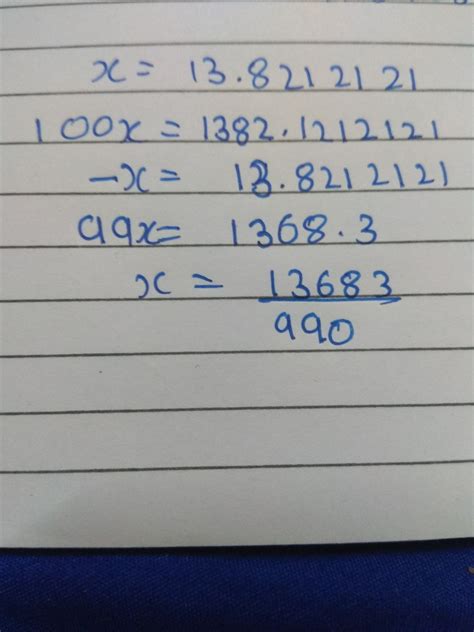 x = 13.8212121
100x = 1382.1212121
-x = 13.8212121
99x = 1368.3
x = 13683
990